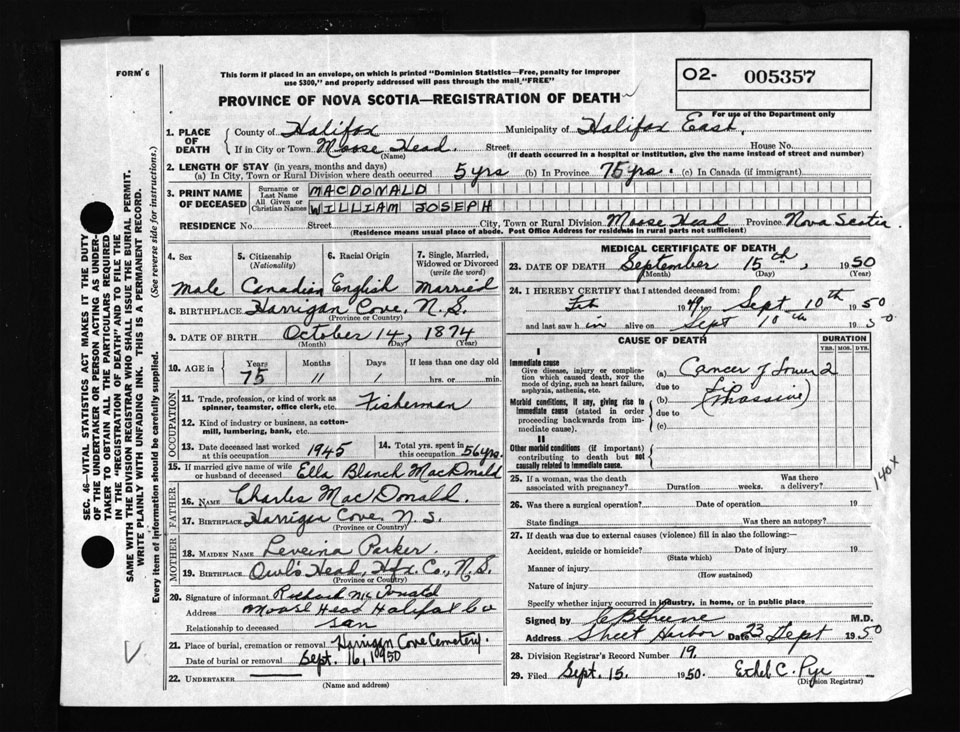 FORM 6
This form if placed in an envelope, on which is printed "Dominion Statistics—Free, penalty for improper
use $300," and properly addressed will pass through the mail "FREE"
O2- 005357
PROVINCE OF NOVA SCOTIA—REGISTRATION OF DEATH
For use of the Department only
SEC. 46—VITAL STATISTICS ACT MAKES IT THE DUTY
OF THE UNDERTAKER OR PERSON ACTING AS UNDER-
TAKER TO OBTAIN ALL THE PARTICULARS REQUIRED
IN THE "REGISTRATION OF DEATH" AND TO FILE THE
SAME WITH THE DIVISION REGISTRAR WHO SHALL ISSUE THE BURIAL PERMIT.
WRITE PLAINLY WITH UNFADING INK. THIS IS A PERMANENT RECORD.
Every item of information should be carefully supplied. (See reverse side for instructions.)
1. PLACE OF DEATH County of Halifax Municipality of Halifax East.
If in City or Town Moose Head. Street House No.
(Name) (If death occurred in a hospital or institution, give the name instead of street and number)
2. LENGTH OF STAY (in years, months and days)
(a) In City, Town or Rural Division where death occurred 5 yrs (b) In Province 75 yrs. (c) In Canada (if immigrant)
3. PRINT NAME OF DECEASED Surname or Last Name MACDONALD
All Given or Christian Names WILLIAM JOSEPH
RESIDENCE No. Street City, Town or Rural Division Moose Head Province Nova Scotia.
(Residence means usual place of abode. Post Office Address for residents in rural parts not sufficient)
4. Sex 5. Citizenship (Nationality) 6. Racial Origin 7. Single, Married, Widowed or Divorced (write the word)
Male Canadian English Married
8. BIRTHPLACE Harrigan Cove, N.S.
(Province or Country)
9. DATE OF BIRTH October 14, 1874
(Month) (Day) (Year)
10. AGE in Years Months Days If less than one day old
75 11 1 hrs. or min.
OCCUPATION
11. Trade, profession, or kind of work as
spinner, teamster, office clerk, etc. Fisherman
12. Kind of industry or business, as cotton-
mill, lumbering, bank, etc.
13. Date deceased last worked at this occupation 1945 14. Total yrs. spent in this occupation 56 yrs.
15. If married give name of wife
or husband of deceased Ella Blanch MacDonald
FATHER
16. NAME Charles MacDonald.
17. BIRTHPLACE Harrigan Cove, N.S.
(Province or Country)
MOTHER
18. MAIDEN NAME Leveina Parker.
19. BIRTHPLACE Owl's Head, Hfx. Co., N.S.
(Province or Country)
20. Signature of informant Richard McDonald
Address Moose Head Halifax Co
Relationship to deceased san
21. Place of burial, cremation or removal Harrigan Cove Cemetery.
Date of burial or removal Sept. 16, 1950
22. UNDERTAKER
(Name and address)
MEDICAL CERTIFICATE OF DEATH
23. DATE OF DEATH September 15th, 1950
(Month) (Day) (Year)
24. I HEREBY CERTIFY that I attended deceased from:
Feb 1949 to Sept 10th 1950
and last saw h im alive on Sept 10th 1950
CAUSE OF DEATH DURATION
YRS. MOS. DYS.
I
Immediate cause
Give disease, injury or complica-
tion which caused death, NOT the
mode of dying, such as heart failure,
asphyxia, asthenia, etc.
(a) Cancer of Lower 2
due to Lip
Morbid conditions, if any, giving rise to
immediate cause (stated in order
proceeding backwards from im-
mediate cause).
(b) (massive)
due to
(c)
II
Other morbid conditions (if important)
contributing to death but not
causally related to immediate cause.
25. If a woman, was the death
associated with pregnancy? Duration weeks. Was there a delivery?
140x
26. Was there a surgical operation? Date of operation 19
State findings Was there an autopsy?
27. If death was due to external causes (violence) fill in also the following:
Accident, suicide or homicide? Date of injury 19
(State which)
Manner of injury
(How sustained)
Nature of injury
Specify whether injury occurred in industry, in home, or in public place
Signed by M.D.
Address Sheet Harbor Date 23 Sept 1950
28. Division Registrar's Record Number 19.
29. Filed Sept. 15. 1950. Ethel C. Pye
(Division Registrar)